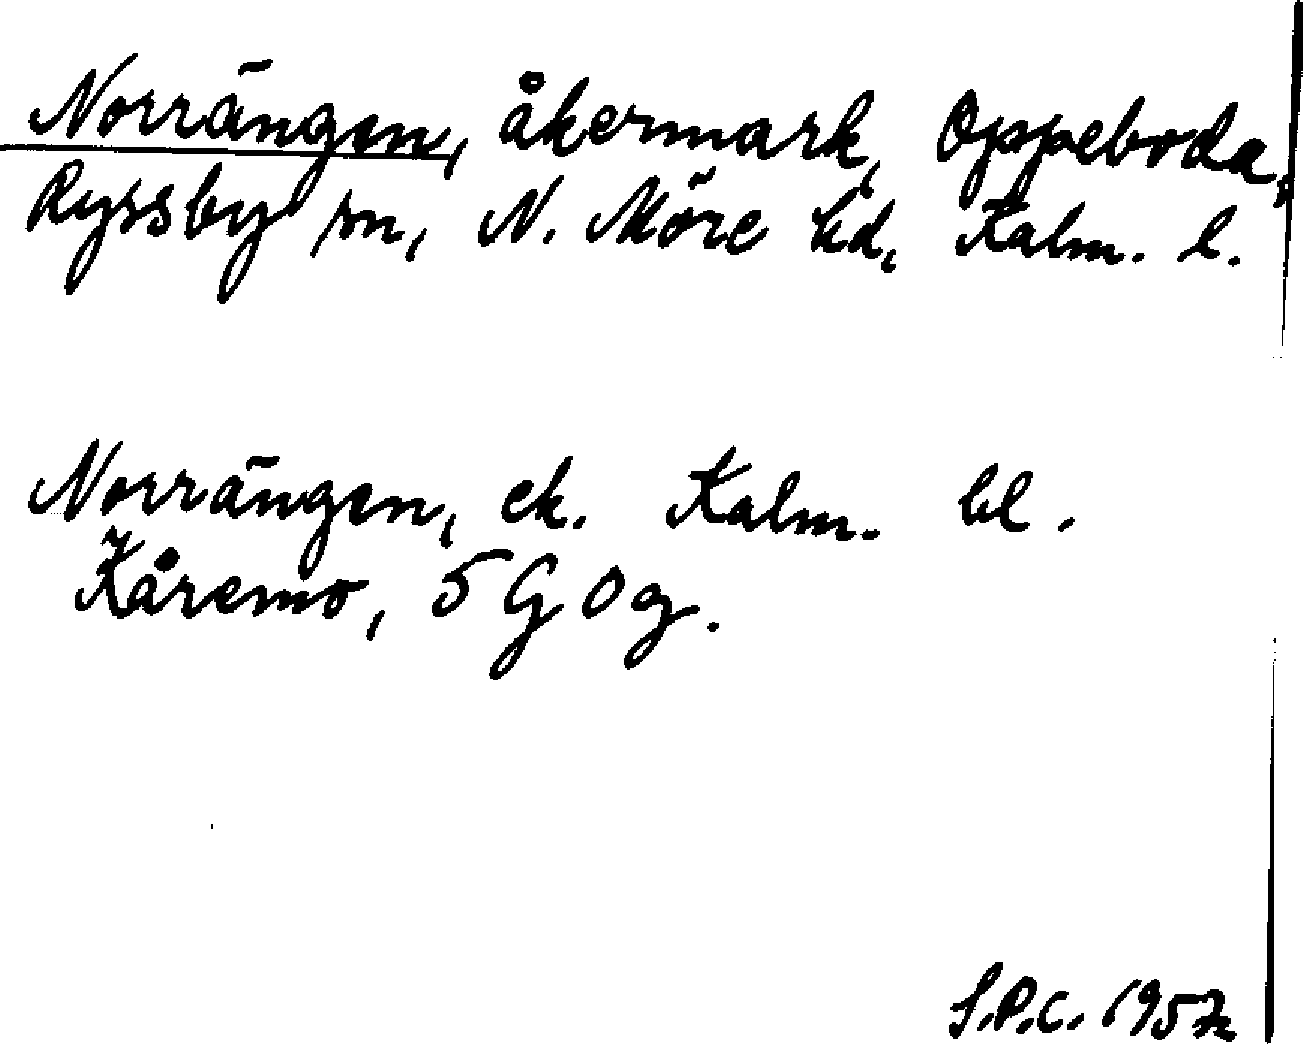 Norrängen, åkermark, Oppeboda,
Ryssby sn, N. Möre hd, Kalm. l.
Norrängen, ek. Kalm. bl.
Kåremo, 5 G 0 g.
S.P.C. 1957